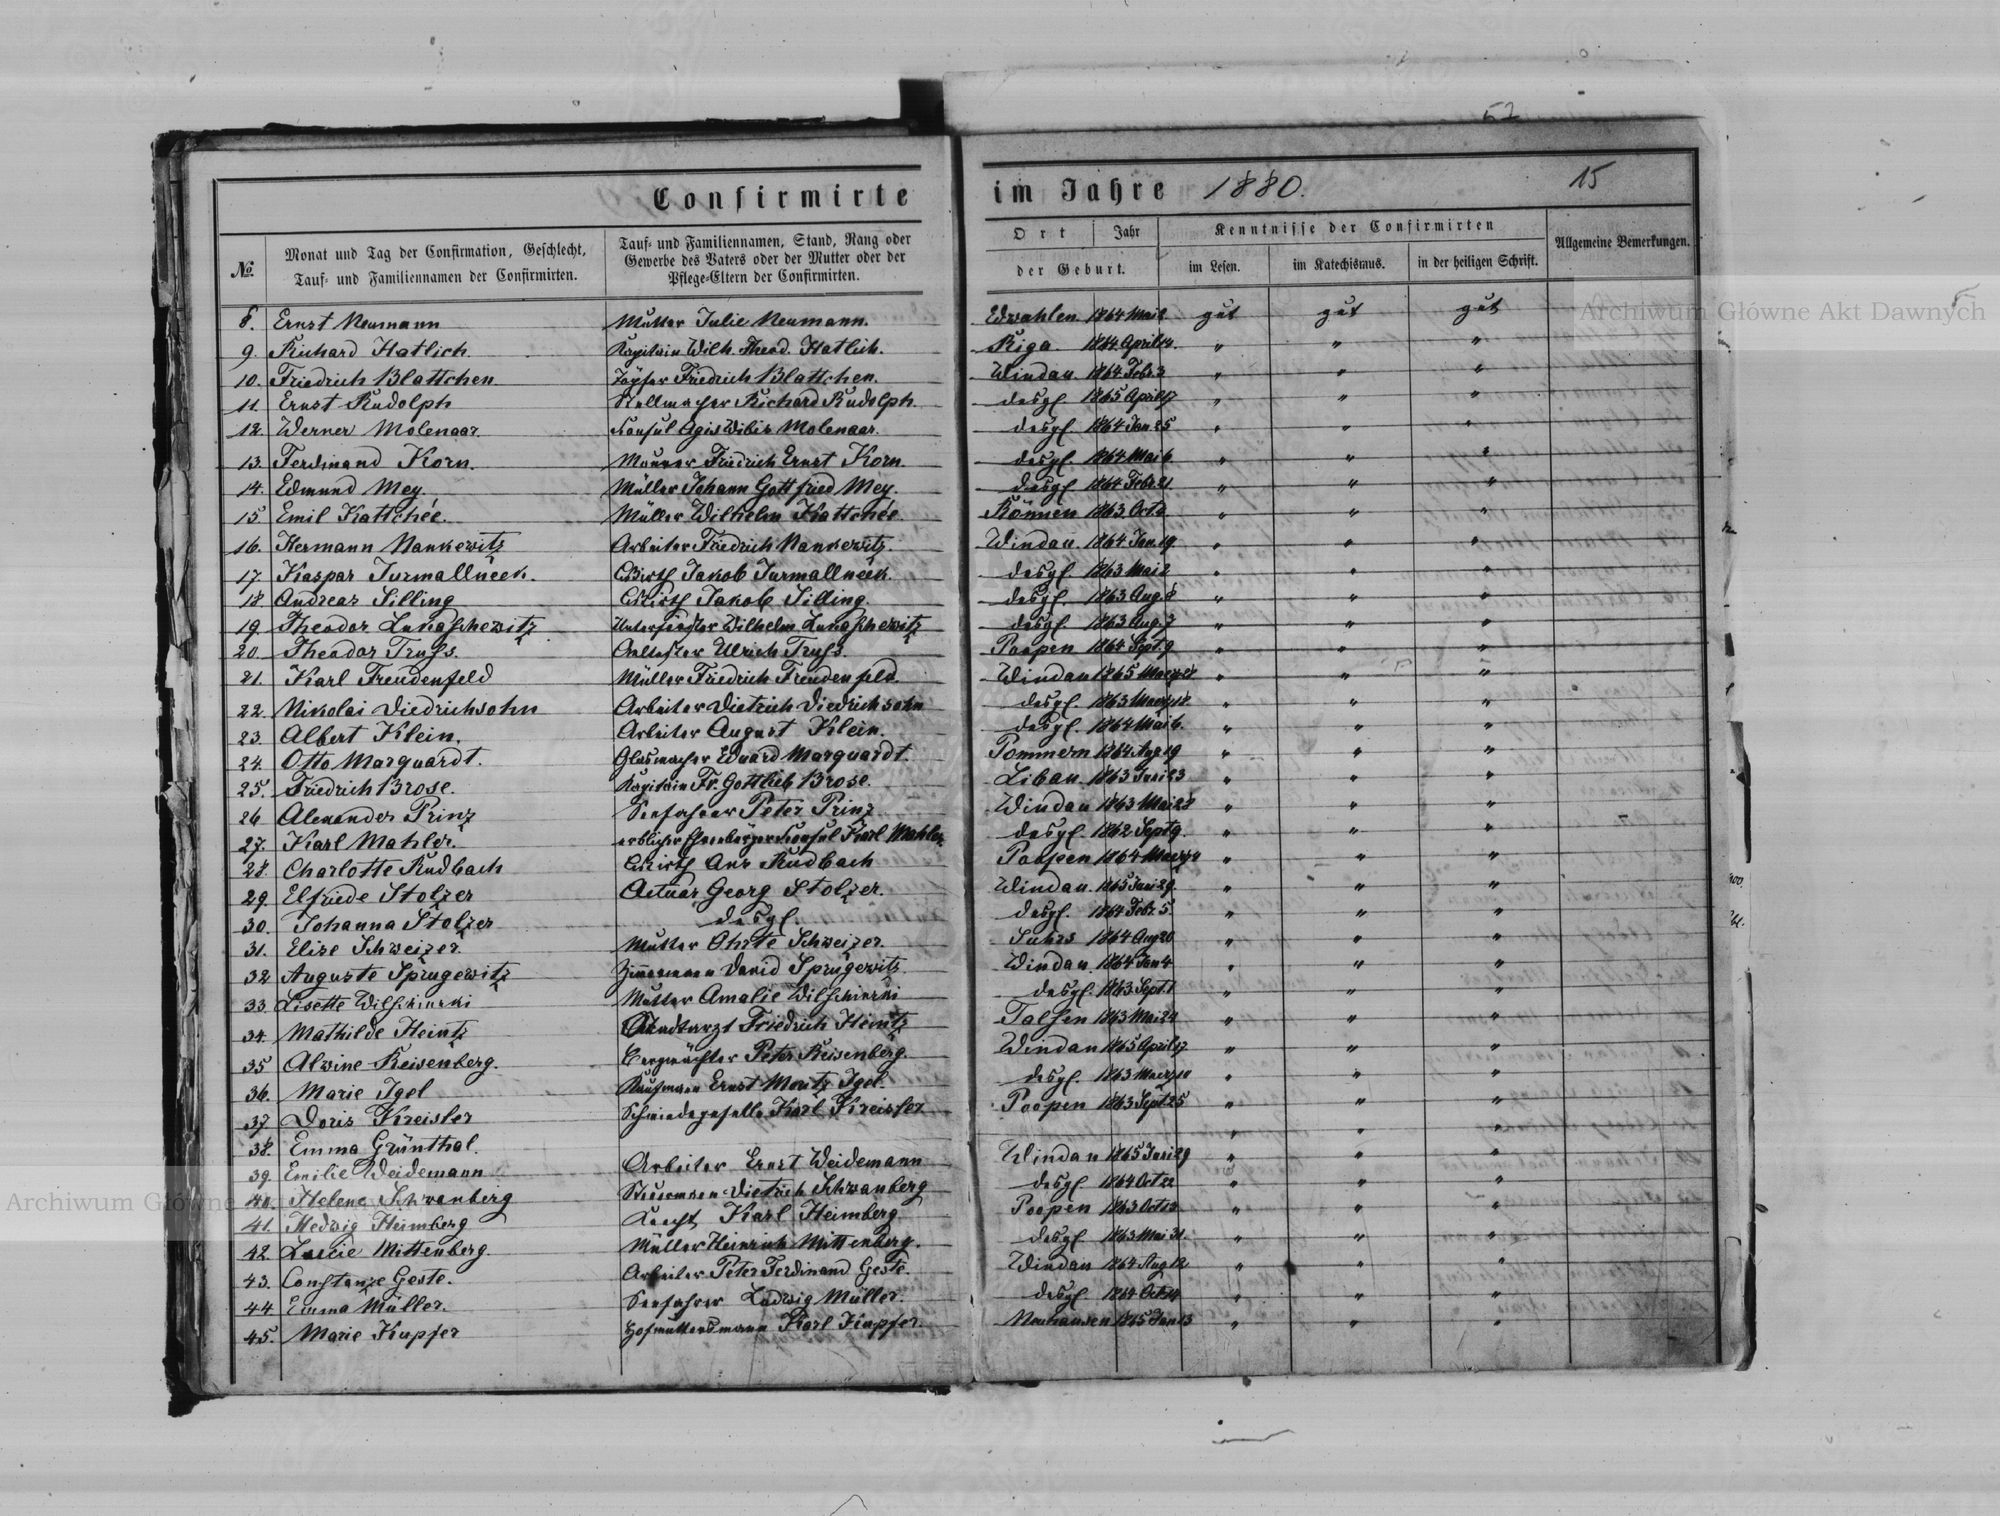 52
Confirmirte im Jahre 1880. 15
№
Monat und Tag der Confirmation, Geschlecht, Tauf- und Familiennamen der Confirmirten.
Tauf- und Familiennamen, Stand, Rang oder Gewerbe des Vaters oder der Mutter oder der Pflege-Eltern der Confirmirten.
Ort | Jahr
der Geburt.
Kenntnisse der Confirmirten
im Lesen. im Katechismus. in der heiligen Schrift.
Allgemeine Bemerkungen.
8. Ernst Neumann Mutter Julie Neumann. Edwahlen 1864 Mai 2 gut gut gut
9. Richard Hatlich Kapitain Wilh. Theod. Hatlich. Riga 1864 April 14. " " "
10. Friedrich Blattchen Töpfer Friedrich Blattchen. Windau 1864 Febr. 3 " " "
11. Ernst Rudolph Stellmacher Richard Rudolph. desgl. 1865 April 17 " " "
12. Werner Molenaar. Konsul Agis Wibis Molenaar. desgl. 1864 Jan. 25 " " "
13. Ferdinand Korn. Maurer Friedrich Ernst Korn. desgl. 1864 Mai 6. " " "
14. Edmund Mey. Müller Johann Gottfried Mey. desgl. 1864 Febr. 21 " " "
15. Emil Kattchée. Müller Wilhelm Kattchée. Rönnen 1863 Oct. " " "
16. Hermann Nankewitz Arbeiter Friedrich Nankewitz. Windau. 1864 Jan. 19. " " "
17. Kaspar Jurmallneek. Wirth Jakob Jurmallneek. desgl. 1863 Mai 2 " " "
18. Andreas Silling Wirth Jakob Silling. desgl. 1863 Aug. 8 " " "
19. Theodor Lukaschewitz Unterförster Wilhelm Lukaschewitz desgl. 1863 Aug. 3 " " "
20. Theodor Truhs. Aeltester Ulrich Truhs. Poopen 1864 Sept. 9 " " "
21. Karl Freudenfeld Müller Friedrich Freudenfeld. Windau 1865 Maerz " " "
22. Nikolai Diedrichsohn Arbeiter Dietrich Diedrichsohn desgl. 1863 Maerz 18 " " "
23. Albert Klein. Arbeiter August Klein. desgl. 1864 Mai 6. " " "
24. Otto Marquardt. Glasmacher Eduard Marquardt. Pommern 1864 Aug. 19 " " "
25. Friedrich Brose. Kapitain Fr. Gottlieb Brose. Libau. 1863 Juni 23 " " "
26. Alexander Prinz Seefahrer Peter Prinz Windau 1863 Mai 28 " " "
27. Karl Mahler. erblicher Ehrenbürger Konsul Karl Mahler. desgl. 1862 Sept 9. " " "
28. Charlotte Rudbach Wirth Ans Rudbach Poopen 1864 Maerz " " "
29. Elfriede Stolzer Actuar Georg Stolzer. Windau. 1865 Juni 29. " " "
30. Johanna Stolzer desgl. desgl. 1864 Febr. 5. " " "
31. Elise Schweizer. Mutter Ohrte Schweizer. Suhrs 1864 Aug 20 " " "
32. Auguste Sprugewitz Zimmermann David Sprugewitz Windau. 1864 Jan 4 " " "
33. Lisette Wilschinski Mutter Amalie Wilschinski desgl. 1863 Sept. 1 " " "
34. Mathilde Heintz Stadtarzt Friedrich Heintz Talsen 1863 Mai 24 " " "
35. Alwine Reisenberg. Peter Reisenberg. Windau 1865 April 17 " " "
36. Marie Igel Kaufmann Ernst Moritz Igel. desgl. 1863 Maerz 10 " " "
37. Doris Kreisler Schmiedegeselle Karl Kreisler Poopen 1863 Sept 25 " " "
38. Emma Grünthal. " " "
39. Emilie Weidemann Arbeiter Ernst Weidemann Windau 1865 Juni 29 " " "
40. Helene Schwanberg Steuermann Dietrich Schwanberg desgl. 1864 Oct 22 " " "
41. Hedwig Heimberg Knecht Karl Heimberg Poopen 1863 Oct 13 " " "
42. Luccie Mittenberg. Müller Heinrich Mittenberg. desgl. 1863 Mai 31. " " "
43. Constanze Geste. Arbeiter Peter Ferdinand Geste. Windau 1864 Aug 12 " " "
44. Emma Müller. Seefahrer Ludwig Müller. desgl. 1864 Oct 14 " " "
45. Marie Kupfer Hofmuttersmann Karl Kupfer. Neuhausen 1865 Jan 13 " " "
Archiwum Główne Akt Dawnych
Archiwum Główne